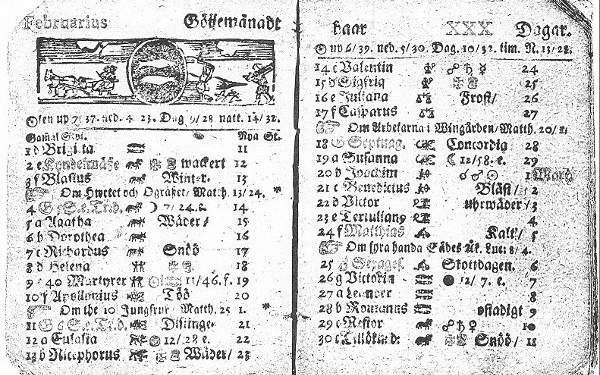 Februarius Göijemånadt
Solen up 7/37. ned. 4 23. Dag 9/28 natt. 14/32.
Gamal Styl. Nya St.
1 d Brigita 11
2 e Kyndelmässe wackert 12
3 f Blasius Winter. 13
Om Hwetet och Ogräset/ Matth. 13/24.
4 7/24. e. 14
5 a Agatha Wäder/ 15
6 b Dorothea 16
7 c Richardus Snöö 17
8 d Helena 18
9 e 40 Martyrer 11/46. f. 19
10 f Apollonius Töö 20
Om the 10 Jungfrur Matth. 25 1.
11 G Disting 21
12 a Eulalia 12/28. e. 22
13 b Nicephorus Wäder/ 23
haar XXX Dagar.
up 6/39. ned. 5/30. Dag. 10/32. tim. N. 13/28.
14 c Valentin ☍ ♄ ☿ 24
15 d Sigfrid 25
16 e Juliana Frost/ 26
17 f Casparus 27
Om Arbetarna i Wingården/ Matth. 20/1.
18 G Septuag. Concordia 28
19 a Susanna ☾ 12/58. e. 29
20 b Joachim ☍ ♂ ☉ 1 Mart.
21 c Benedictus Blåst/ 2
22 d Victor uhrwäder/ 3
23 e Tertulian 4
24 f Matthias Kalt/ 5
Om fyra handa Sädes Åk. Luc: 8/4.
25 G Sexages. Skottdagen. 6
26 g Victorin ● 12/7. e. 7
27 a Leander 8
28 b Romanus ostadigt 9
29 c Nestor ☍ ♄ ♀ 10
30 Snöö/ 11